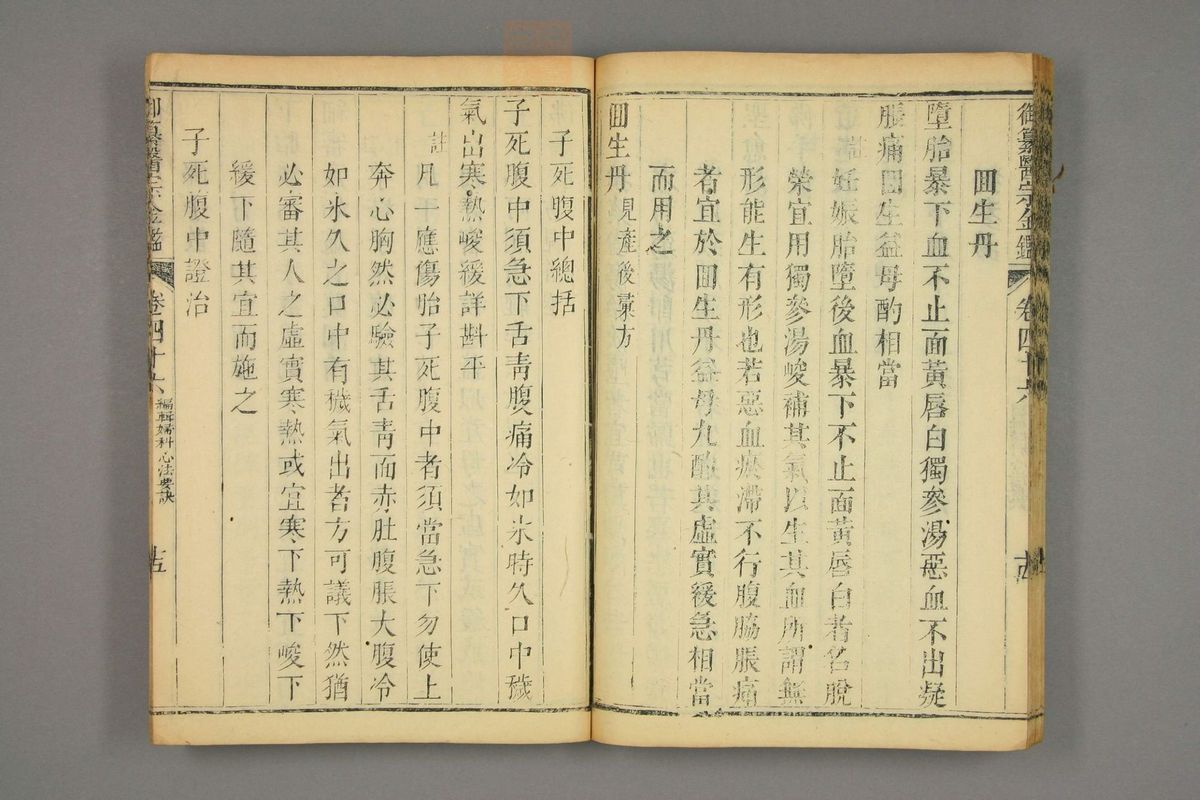 御纂醫宗金鑑 卷四十六
回生丹
墮胎暴下血不止面黃唇白獨參湯惡血不出凝
脹痛回生益母酌相當
註
妊娠胎墮後血暴下不止面黃唇白者名脫
榮宜用獨參湯峻補其氣以生其血所謂無
形能生有形也若惡血瘀滯不行腹脇脹痛
者宜於回生丹益母丸酌其虛實緩急相當
而用之
回生丹見產後彙方
子死腹中總括
子死腹中須急下舌青腹痛冷如氷時久口中穢
氣出寒熱峻緩詳斟平
註
凡一應傷胎子死腹中者須當急下勿使上
奔心胸然必驗其舌青面赤肚腹脹大腹冷
如氷久之口中有穢氣出者方可議下然猶
必審其人之虛實寒熱或宜寒下熱下峻下
緩下隨其宜而施之
子死腹中證治
御纂醫宗金鑑 卷四十六 編輯婦科心法要訣